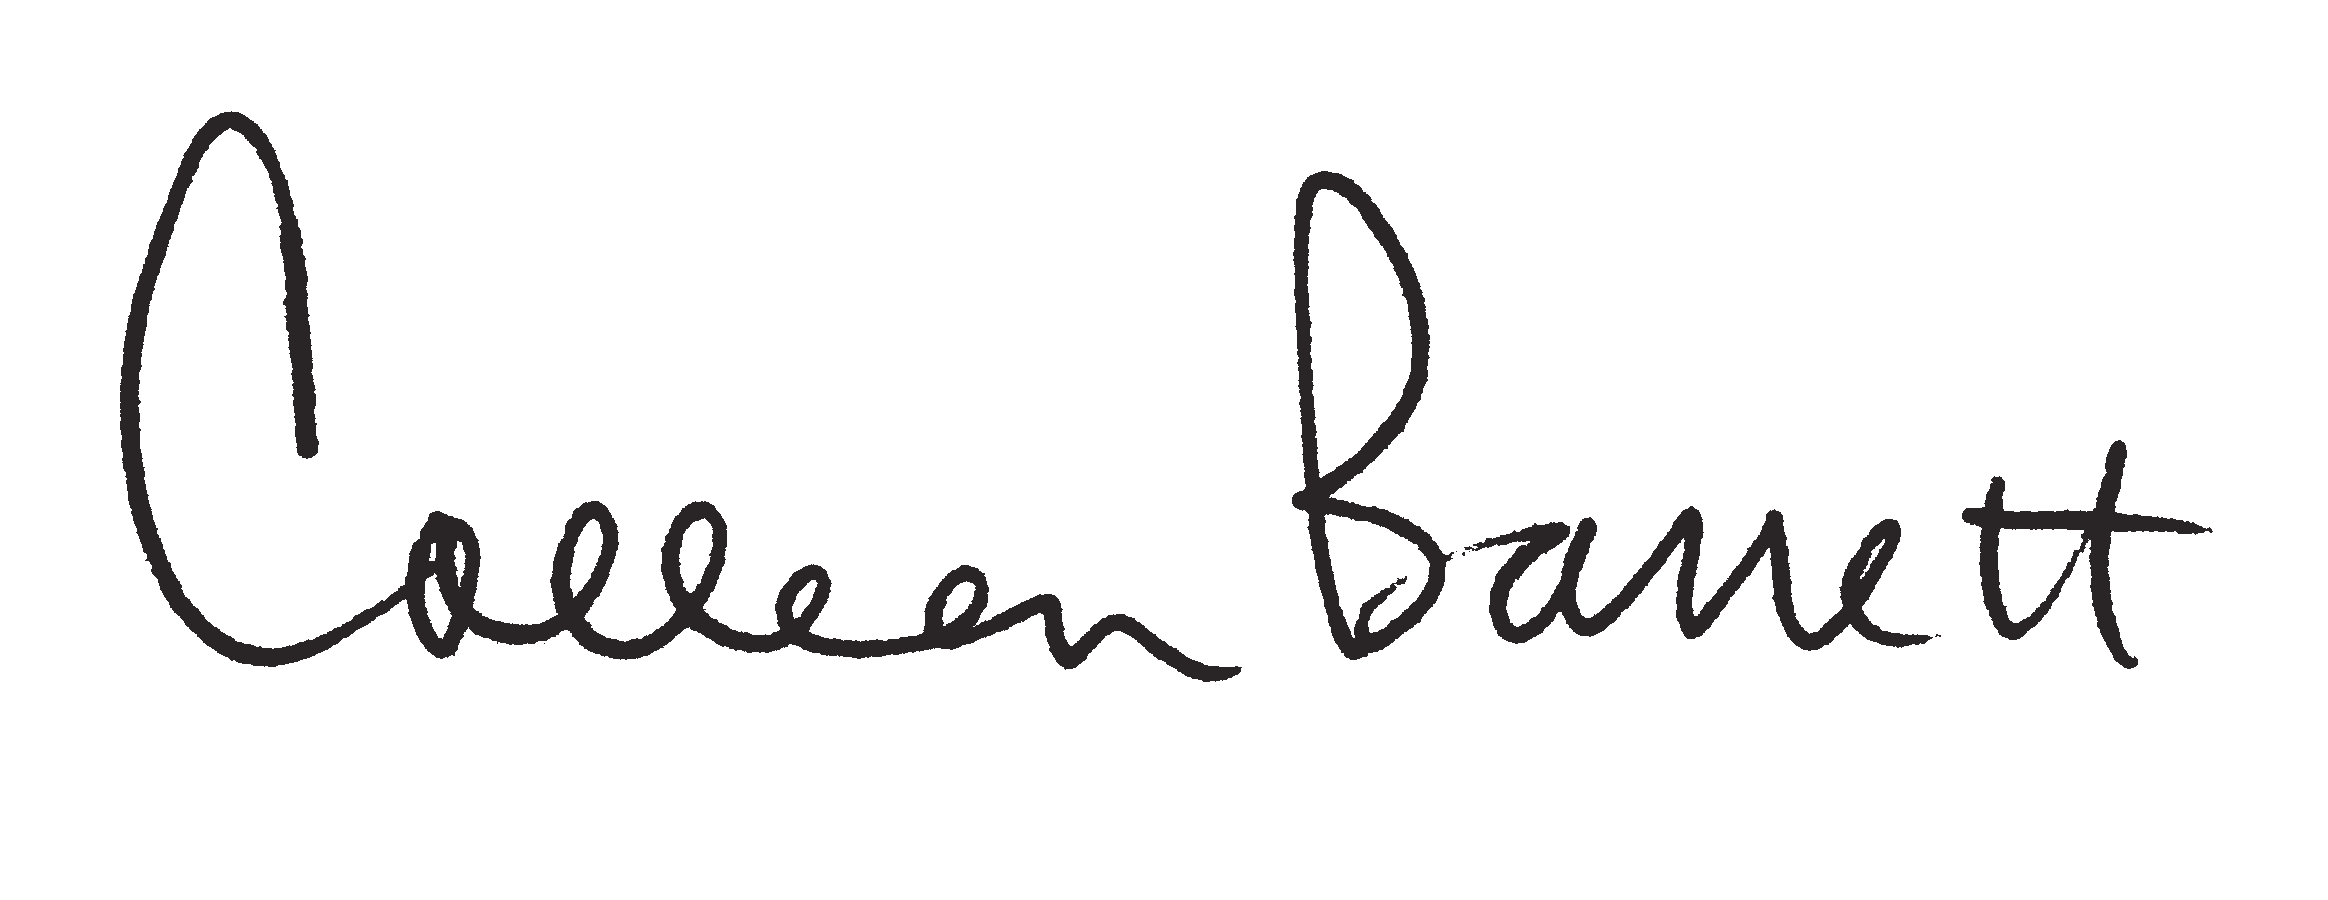 Colleen Barrett